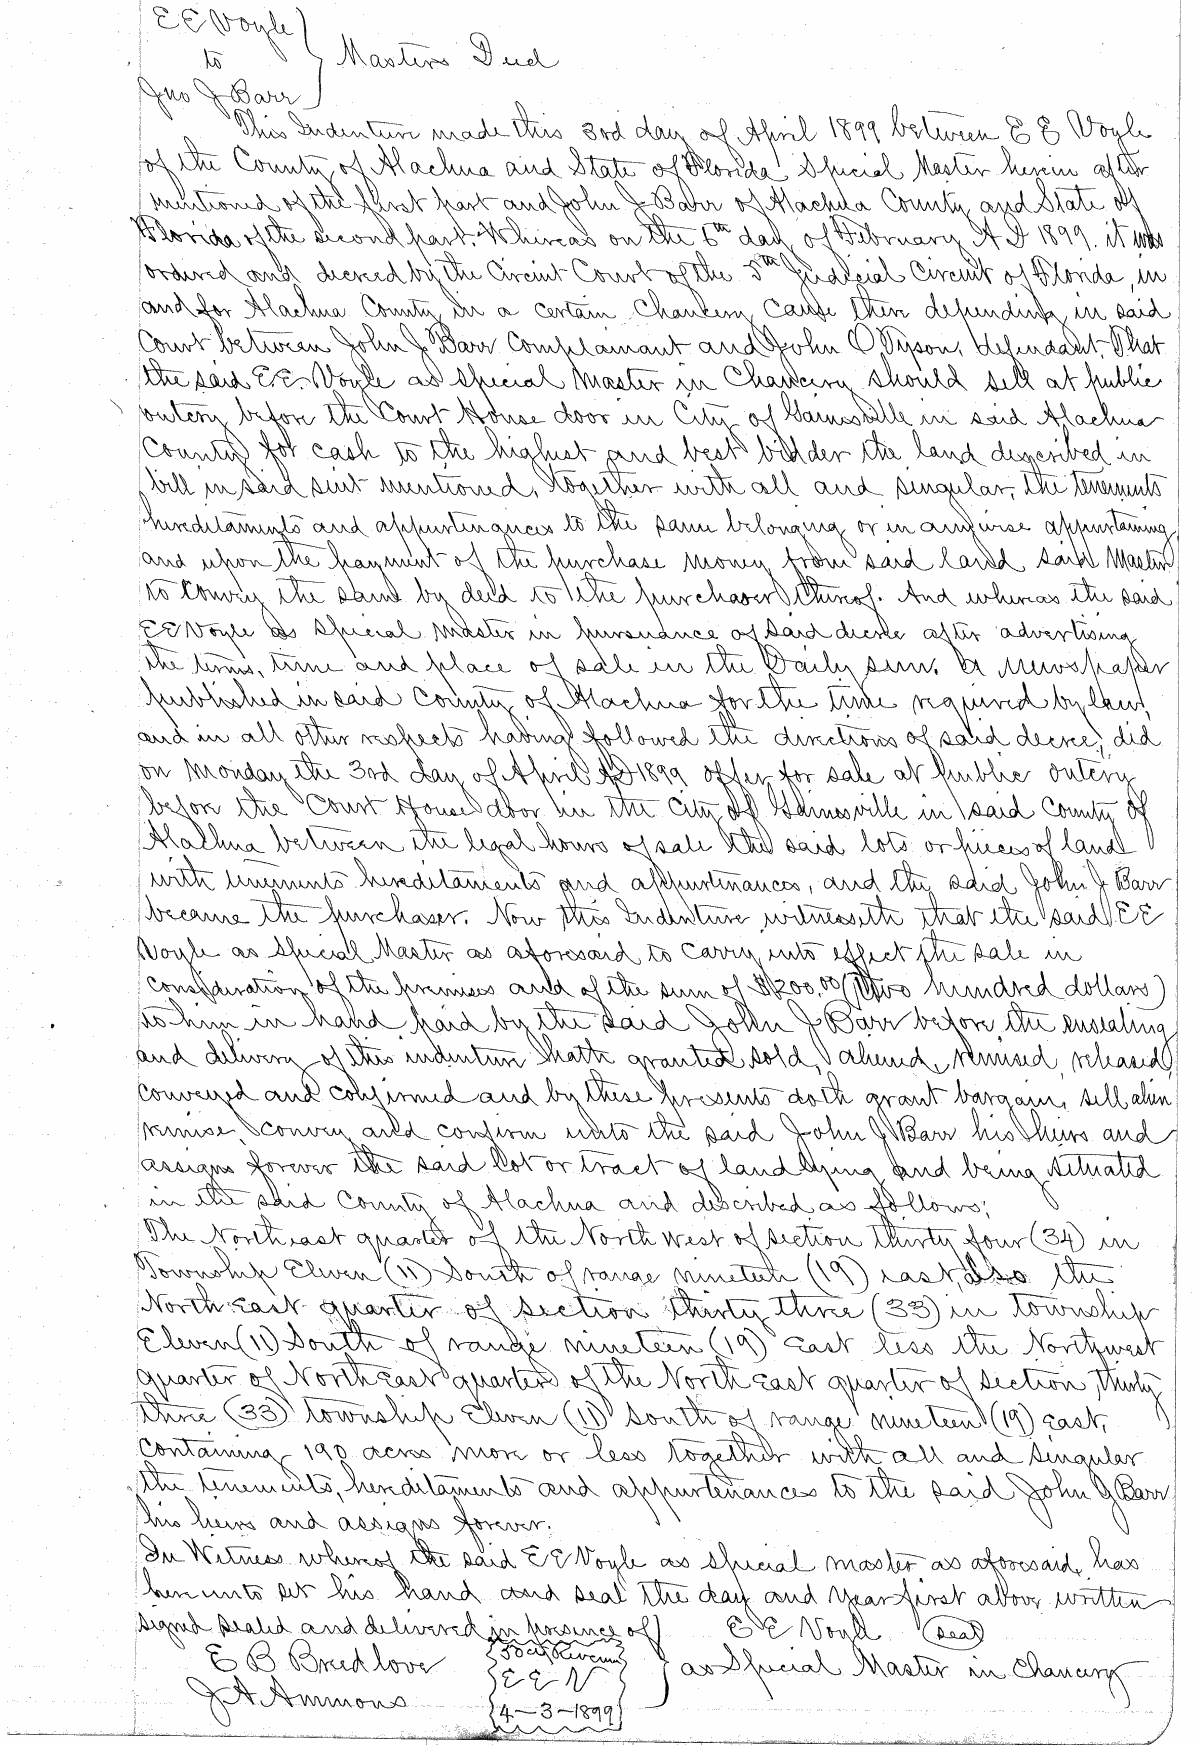 E E Voyle
to
Jno J Barr
Masters Deed
This Indenture made this 3rd day of April 1899 between E E Voyle
of the County of Alachua and State of Florida Special Master herein after
mentioned of the first part and John J Barr of Alachua County and State of
Florida of the second part. Whereas on the 6th day of February A D 1899. it was
ordered and decreed by the Circuit Court of the 5th Judicial Circuit of Florida, in
and for Alachua County in a certain Chancery cause then depending in said
Court between John J Barr Complainant and John O Dyson, defendant. That
the said E.E. Voyle as Special Master in Chancery should sell at public
outcry before the Court House door in City of Gainesville in said Alachua
County for cash to the highest and best bidder the land described in
bill in said suit mentioned, together with all and singular, the tenements
hereditaments and appurtenances to the same belonging or in anywise appurtaining
and upon the payment of the purchase money from said land said Master
to convey the same by deed to the purchaser thereof. And whereas the said
E E Voyle as Special Master in pursuance of said decree after advertising
the terms, time and place of sale in the Daily Sun. a newspaper
published in said County of Alachua for the time required by law,
and in all other respects having followed the directions of said decree, did
on Monday the 3rd day of April AD 1899 offer for sale at public outcry
before the Court House door in the City of Gainesville in said County of
Alachua between the legal hours of sale the said lots or pieces of land
with tenements hereditaments and appurtenances, and the said John J Barr
became the purchaser. Now this Indenture witnesseth that the said E E
Voyle as Special Master as aforesaid to carry into effect the sale in
consideration of the premises and of the sum of $200.00 (two hundred dollars)
to him in hand paid by the said John J Barr before the ensealing
and delivery of this indenture hath granted sold, aliened, remised, released,
conveyed and confirmed and by these presents doth grant bargain, sell alien
remise, convey and confirm unto the said John J Barr his heirs and
assigns forever the said lot or tract of land lying and being situated
in the said County of Alachua and described as follows;
The North east quarter of the North West of section thirty four (34) in
Township Eleven (11) South of range nineteen (19) east, also the
North East quarter of section thirty three (33) in township
Eleven (11) South of range nineteen (19) East less the Northwest
quarter of North East quarter of the North East quarter of section, thirty
three (33) township Eleven (11) South of range nineteen (19) East,
Containing 190 acres more or less together with all and singular
the tenements, hereditaments and appurtenances to the said John J Barr
his heirs and assigns forever.
In Witness whereof the said E E Voyle as special master as aforesaid, has
hereunto set his hand and seal the day and year first above written
signed sealed and delivered in presence of
E B Breedlove
J A Ammons
50 cts Revenue
E E V
4-3-1899
E E Voyle (seal)
as Special Master in Chancery